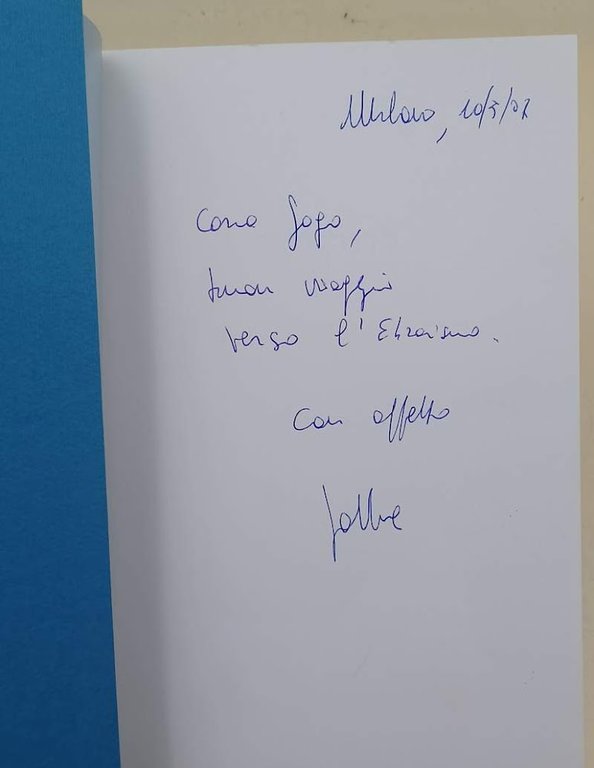 Milano, 10/5/07
Cara
buon viaggio
verso l'Ebraismo.
Con affetto